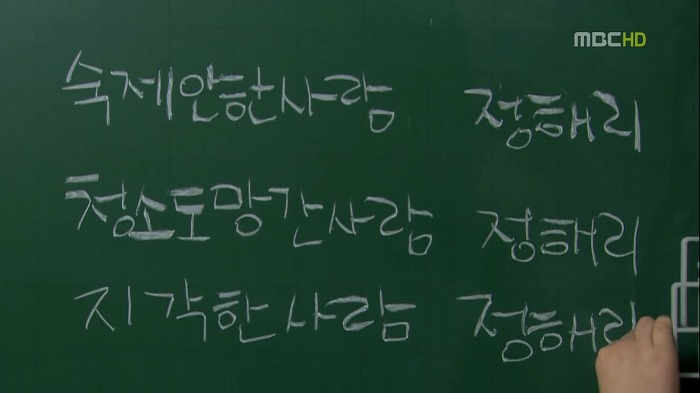 MBC HD
숙제안한사람 정해리
청소도망간사람 정해리
지각한사람 정해리